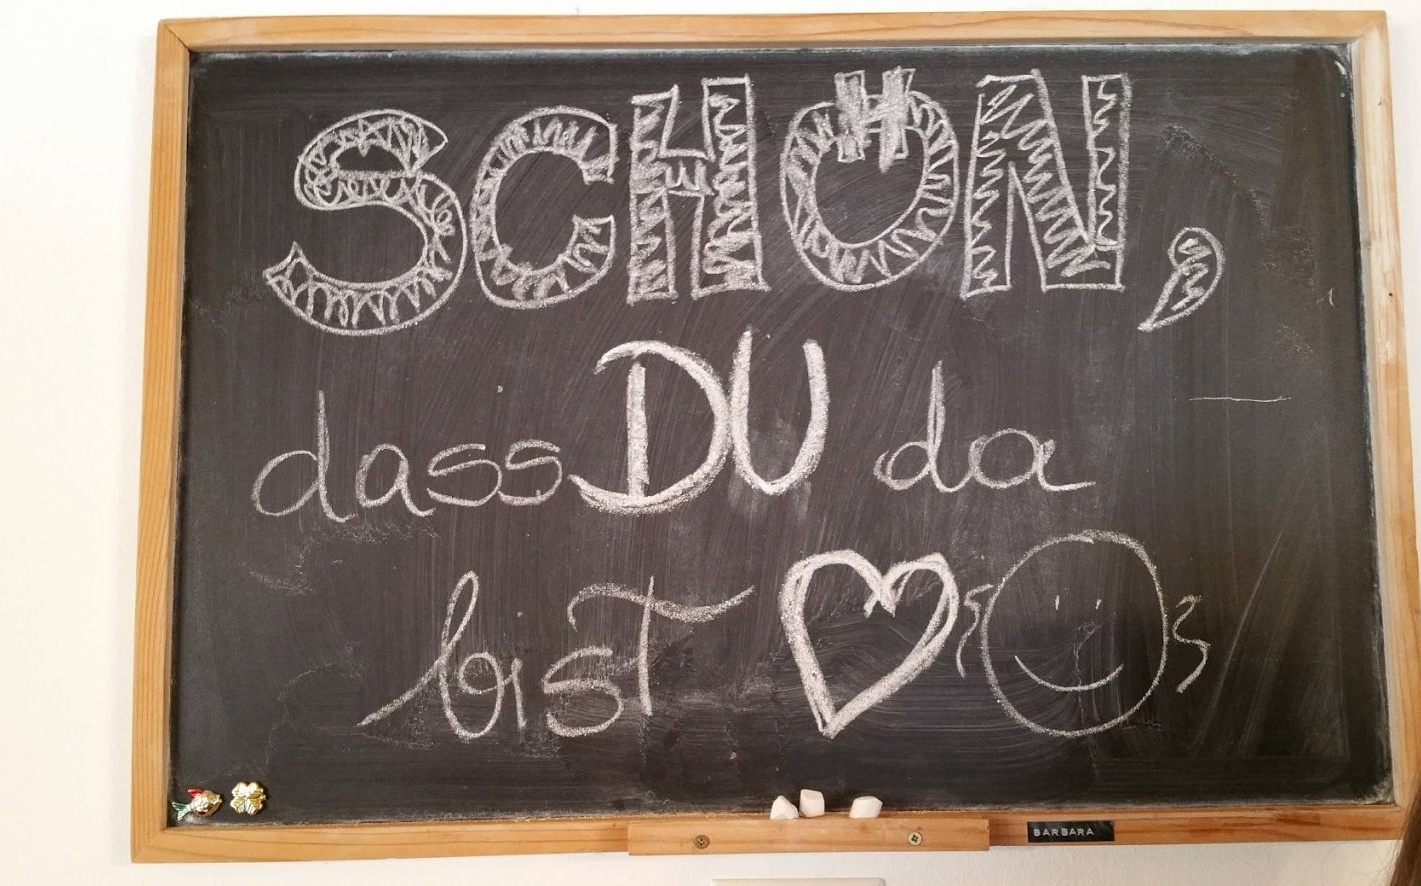 SCHÖN,
dass DU da
bist
BARBARA